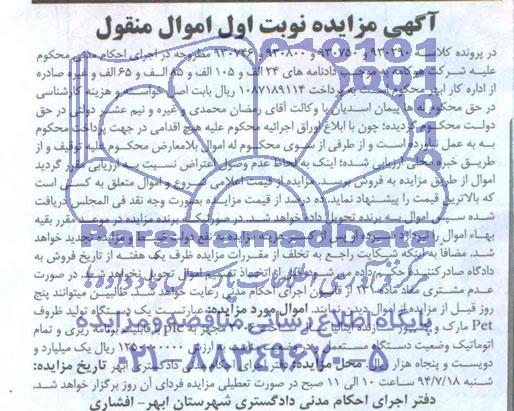 آگهی مزایده نوبت اول اموال منقول
در پرونده کلاسه ۹۳۰۲۹۰ - ۹۳۰۷۵۰ و ۹۳۰۸۰۰ و ۹۳۰۷۴۶ مطروحه در اجرای احکام مدنی محکوم
علیه شرکت هوکامه به موجب دادنامه های ۲۴ الف و ۱۰۵ الف و ۸۵ الف و ۶۵ الف و غیره صادره
از اداره کار ابهر محکوم است به پرداخت ۱۰۸۷۱۸۹۱۱۴ ریال بابت اصل خواسته و هزینه کارشناسی
در حق محکوم له ها پیمان اسدیان با وکالت آقای رمضان محمدی و غیره و نیم عشر دولتی در حق
دولت محکوم گردیده؛ چون با ابلاغ اوراق اجرائیه محکوم علیه هیچ اقدامی در جهت پرداخت محکوم
به به عمل نیاورده است و از طرفی از سوی محکوم له اموال بلامعارض محکوم علیه توقیف و از
طریق خبره محلی ارزیابی شده؛ اینک به لحاظ عدم وصول اعتراض نسبت به ارزیابی مقرر گردید
اموال از طریق مزایده به فروش برسد. مزایده از قیمت اعلامی شروع و اموال متعلق به کسی است
که بالاترین قیمت را پیشنهاد نماید. ده درصد از قیمت مزایده بصورت وجه نقد فی المجلس دریافت
شده سپس اموال به برنده تحویل داده خواهد شد. در صورتیکه برنده مزایده در موعد مقرر بقیه
بهاء اموال را نپردازد سپرده او پس از کسر هزینه مزایده به نفع دولت ضبط و مزایده تجدید خواهد
شد. مضافا به اینکه شکایت راجع به تخلف از مقررات مزایده ظرف یک هفته از تاریخ فروش به
دادگاه صادرکننده حکم داده می شود و قبل از اتخاذ تصمیم اموال تحویل نخواهد شد. در صورت
عدم مشتری مفاد ماده ۱۳۲ از قانون اجرای احکام مدنی رعایت خواهد شد. طالبین میتوانند پنج
روز قبل از مزایده از اموال دیدن نمایند. اموال مورد مزایده: عبارتیست یک دستگاه تولید ظروف
Pet مارک و سازنده ایتالیا مجهز به plc قابلیت برنامه ریزی و تمام
اتوماتیک وضعیت دستگاه مستعمل به ارزش ۱۲۵۰۰۰۰۰۰۰ ریال یک میلیارد و
دویست و پنجاه هزار ریال. محل مزایده: دفتر اجرای احکام مدنی دادگستری ابهر تاریخ مزایده:
شنبه ۹۴/۷/۱۸ ساعت ۱۰ الی ۱۱ صبح در صورت تعطیلی مزایده فردای آن روز برگزار خواهد شد.
دفتر اجرای احکام مدنی دادگستری شهرستان ابهر- افشاری
ParsNamadData
پایگاه اطلاع رسانی مناقصه و مزایده
۰۲۱-۸۸۳۴۹۶۷۰-۵